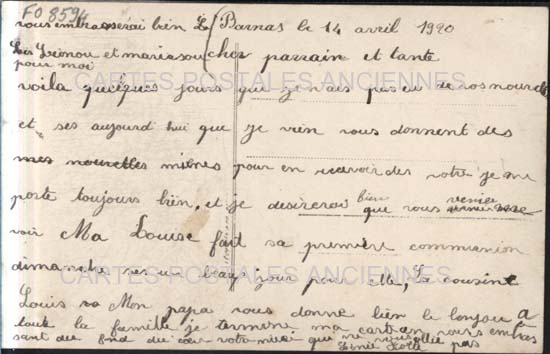 FO 8594
vous embrasserai bien L
Barnas le 14 avril 1920
Simon et maria sou
pour moi
cher parrain et tante
CARTES POSTALES ANCIENNES
voila quelques jours que je n'ais pas eu de vos nouvelle
et ses aujourd hui que je vien vous donnent des
mes nouvelles miènes pour en recevoir des votre je me
porte toujours bien, et je desirerai bien que vous venier
voir Ma Louise fait sa première communion
dimanche ses un beau jour pour elle, La cousine
CARTES POSTALES ANCIENNES
Louis va Mon papa vous donne bien le bonjour a
toute la famille je termine ma cart en vous embras
sant du fond du cœur votre nièce que ne vous oublie pas